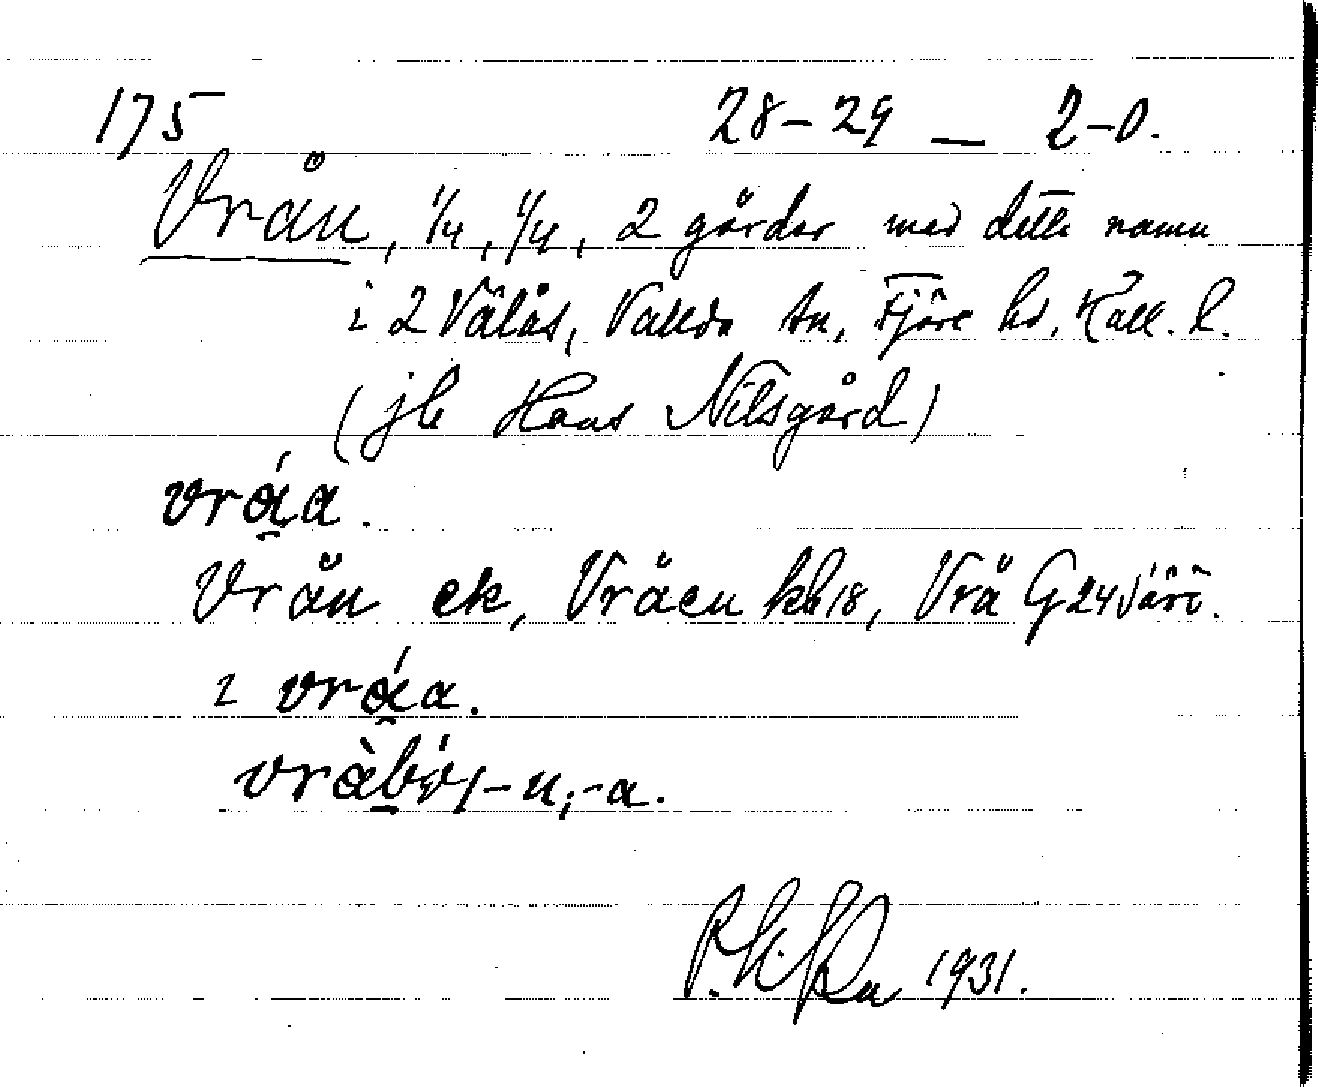 175 28-29 — 2-0.
Vrån, 1/4, 1/4, 2 gårdar med detta namn
i 2 Välås, Vallda sn, Fjäre hd, Hall. l.
(jb Hans Nilsgård)
vrá̱a.
Vrån ek, Vråen kb18, Vrå G24
i vrá̱a.
1931.